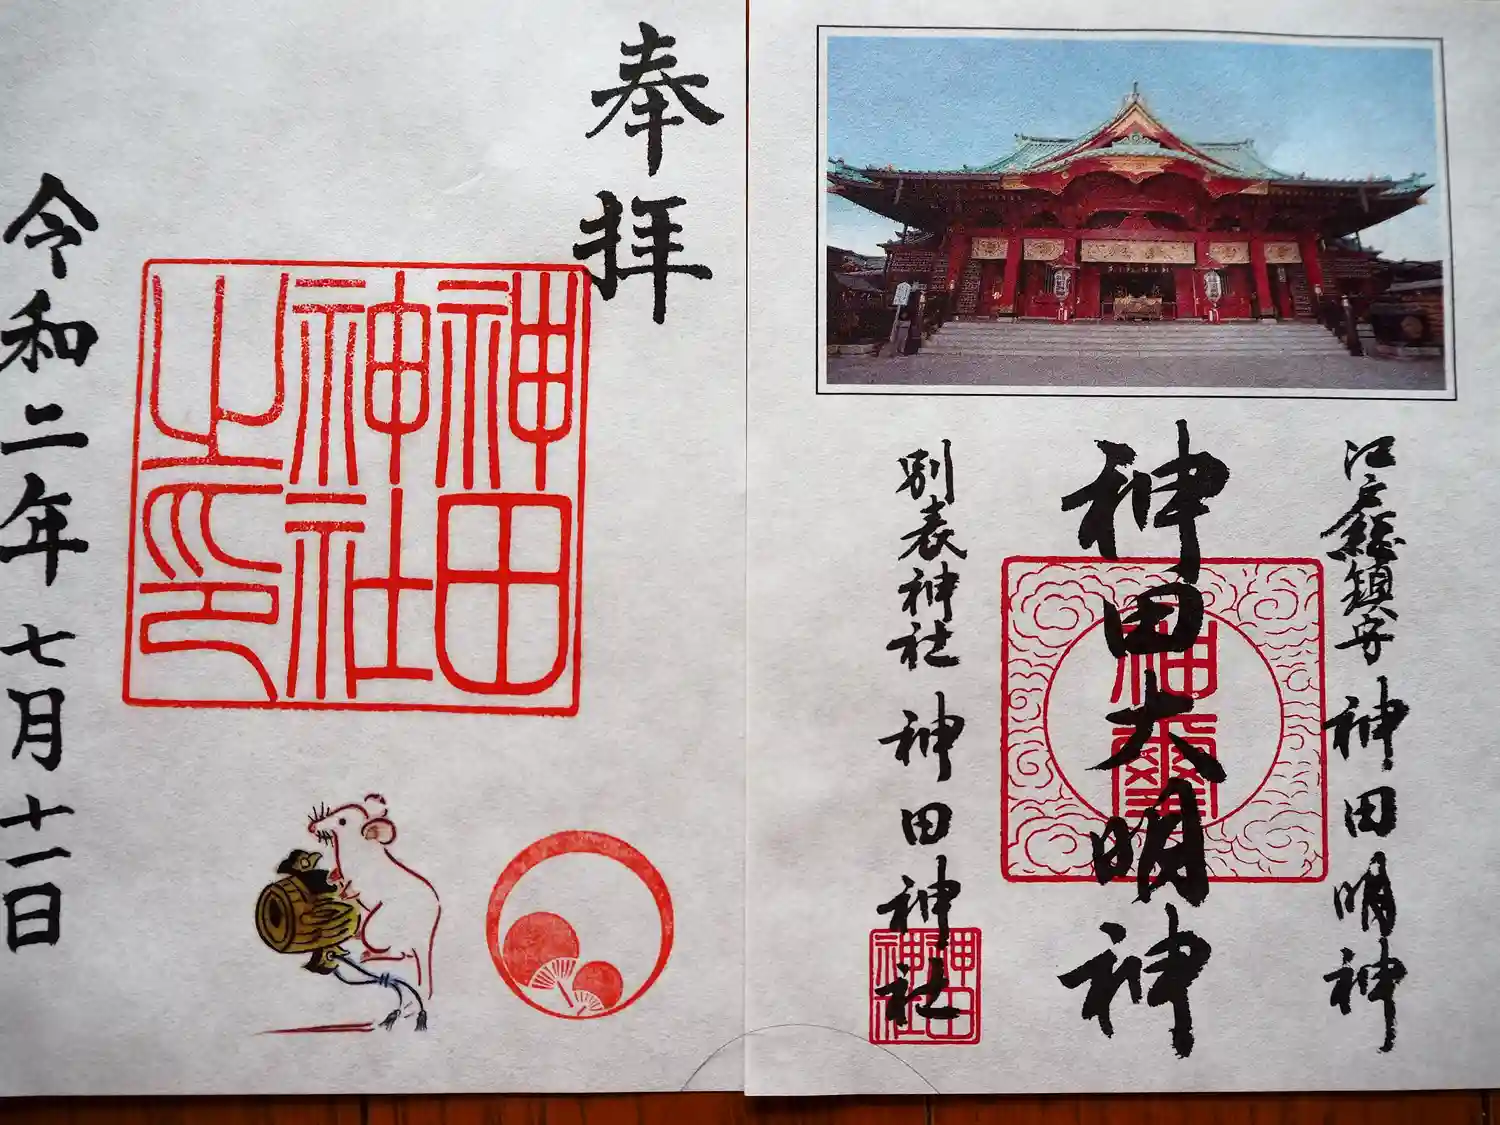 江戸総鎮守 神田明神
神田大明神
神璽
別表神社 神田神社
神田
神社
奉拝
神田
神社
之印
令和二年七月十一日